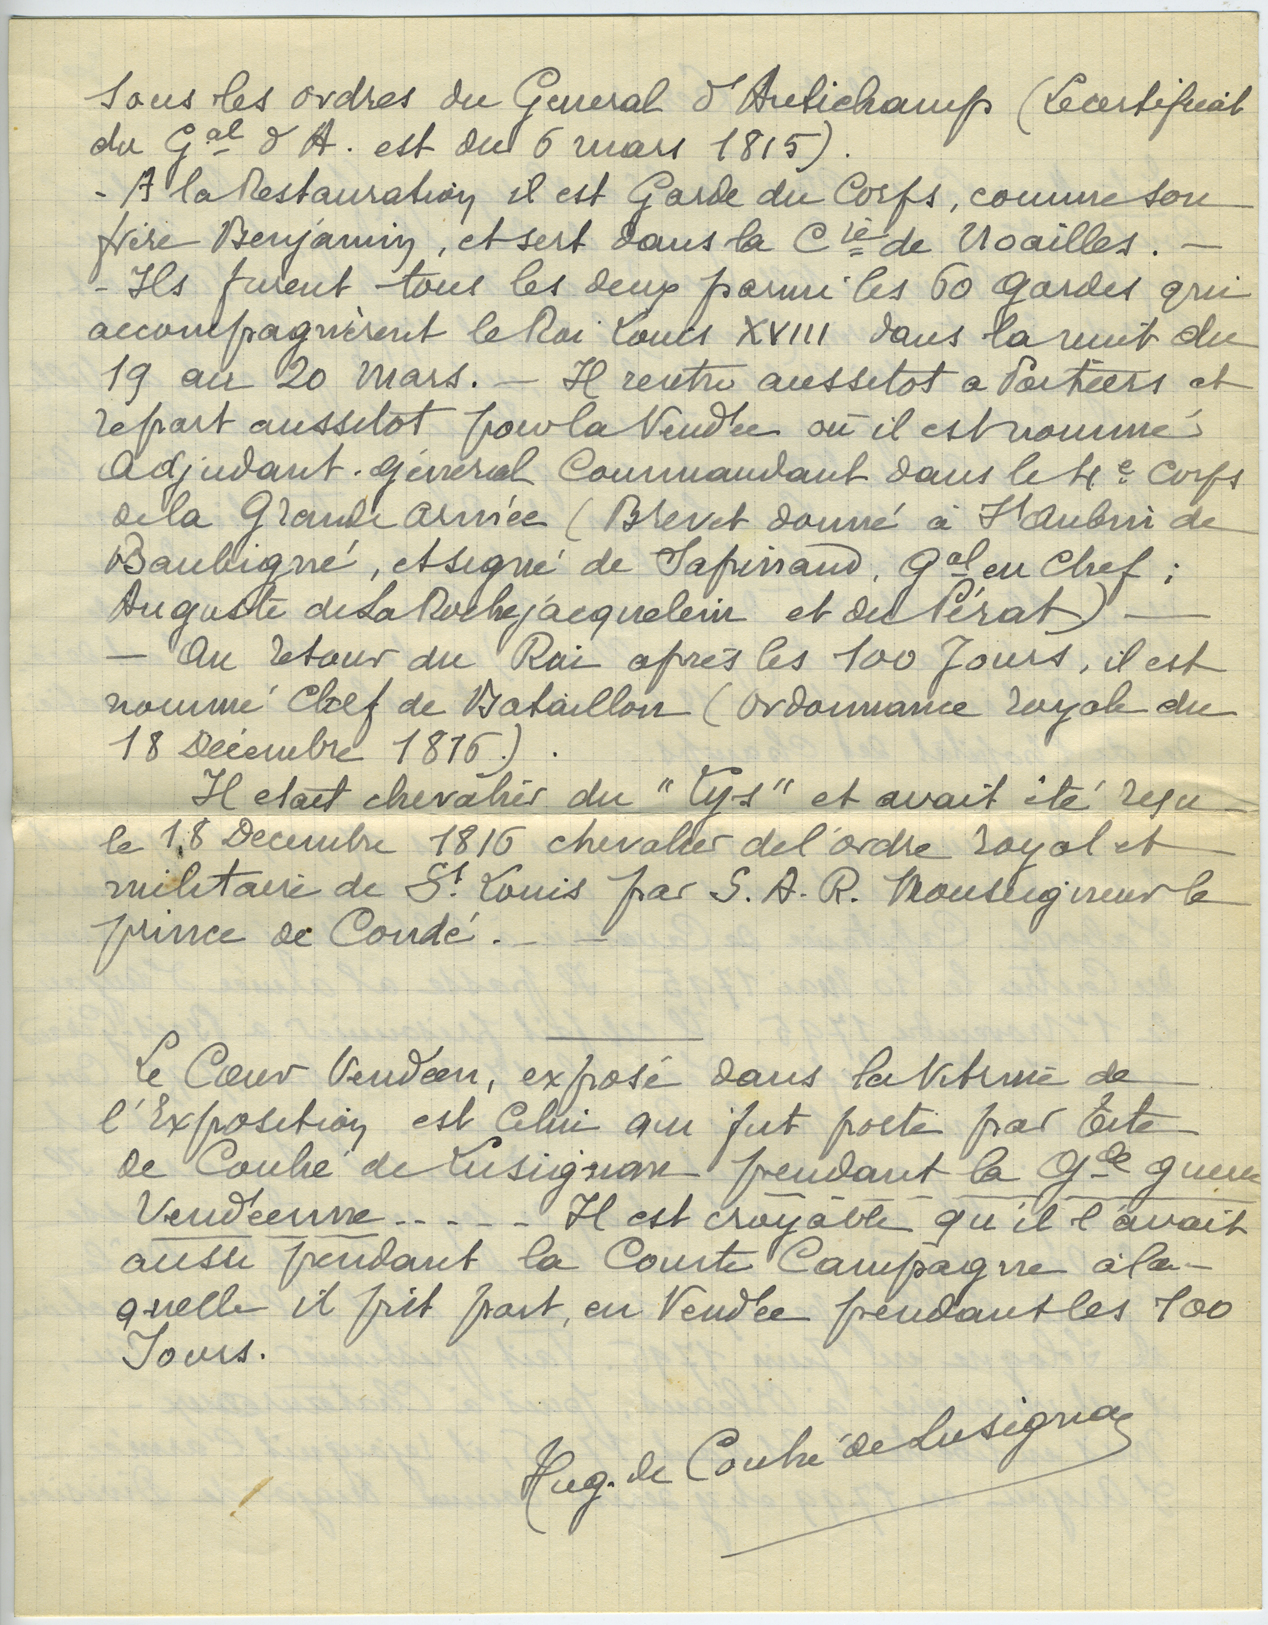 Sous les ordres du General d'Autichamp (Le certificat
du Gal d'A. est du 6 mars 1815).
- A la Restauration il est Garde du Corps, comme son
frère Benjamin, et sert dans la Cie de Noailles. —
- Ils furent tous les deux parmi les 60 gardes qui
accompagnèrent le Roi Louis XVIII dans la nuit du
19 au 20 Mars. — Il rentre aussitot a Poitiers et
repart aussitot pour la Vendée où il est nommé
Adjudant-général Commandant dans le 4e Corps
de la Grande armée (Brevet donné à St Aubin de
Baubigné, et signé de Sapinaud, Gal en Chef ;
Auguste de La Rochejacquelein et du Pérat) —
— Au retour du Roi après les 100 Jours, il est
nommé Chef de Bataillon (ordonnance royale du
18 Décembre 1816).
Il etait chevalier du "Lys" et avait été reçu
le 18 Decembre 1816 chevalier de l'ordre royal et
militaire de St Louis par S. A. R. Monseigneur le
prince de Condé. — —
Le Cœur Vendéen, exposé dans la Vitrine de
l'Exposition est Celui qui fut porté par
de Couhé de Lusignan pendant la Gde guerre
Vendéenne ----- Il est croyable qu'il l'avait
aussi pendant la Courte Campagne à la-
quelle il prit part, en Vendée pendant les 100
Jours.
Hug. de Couhé de Lusignan